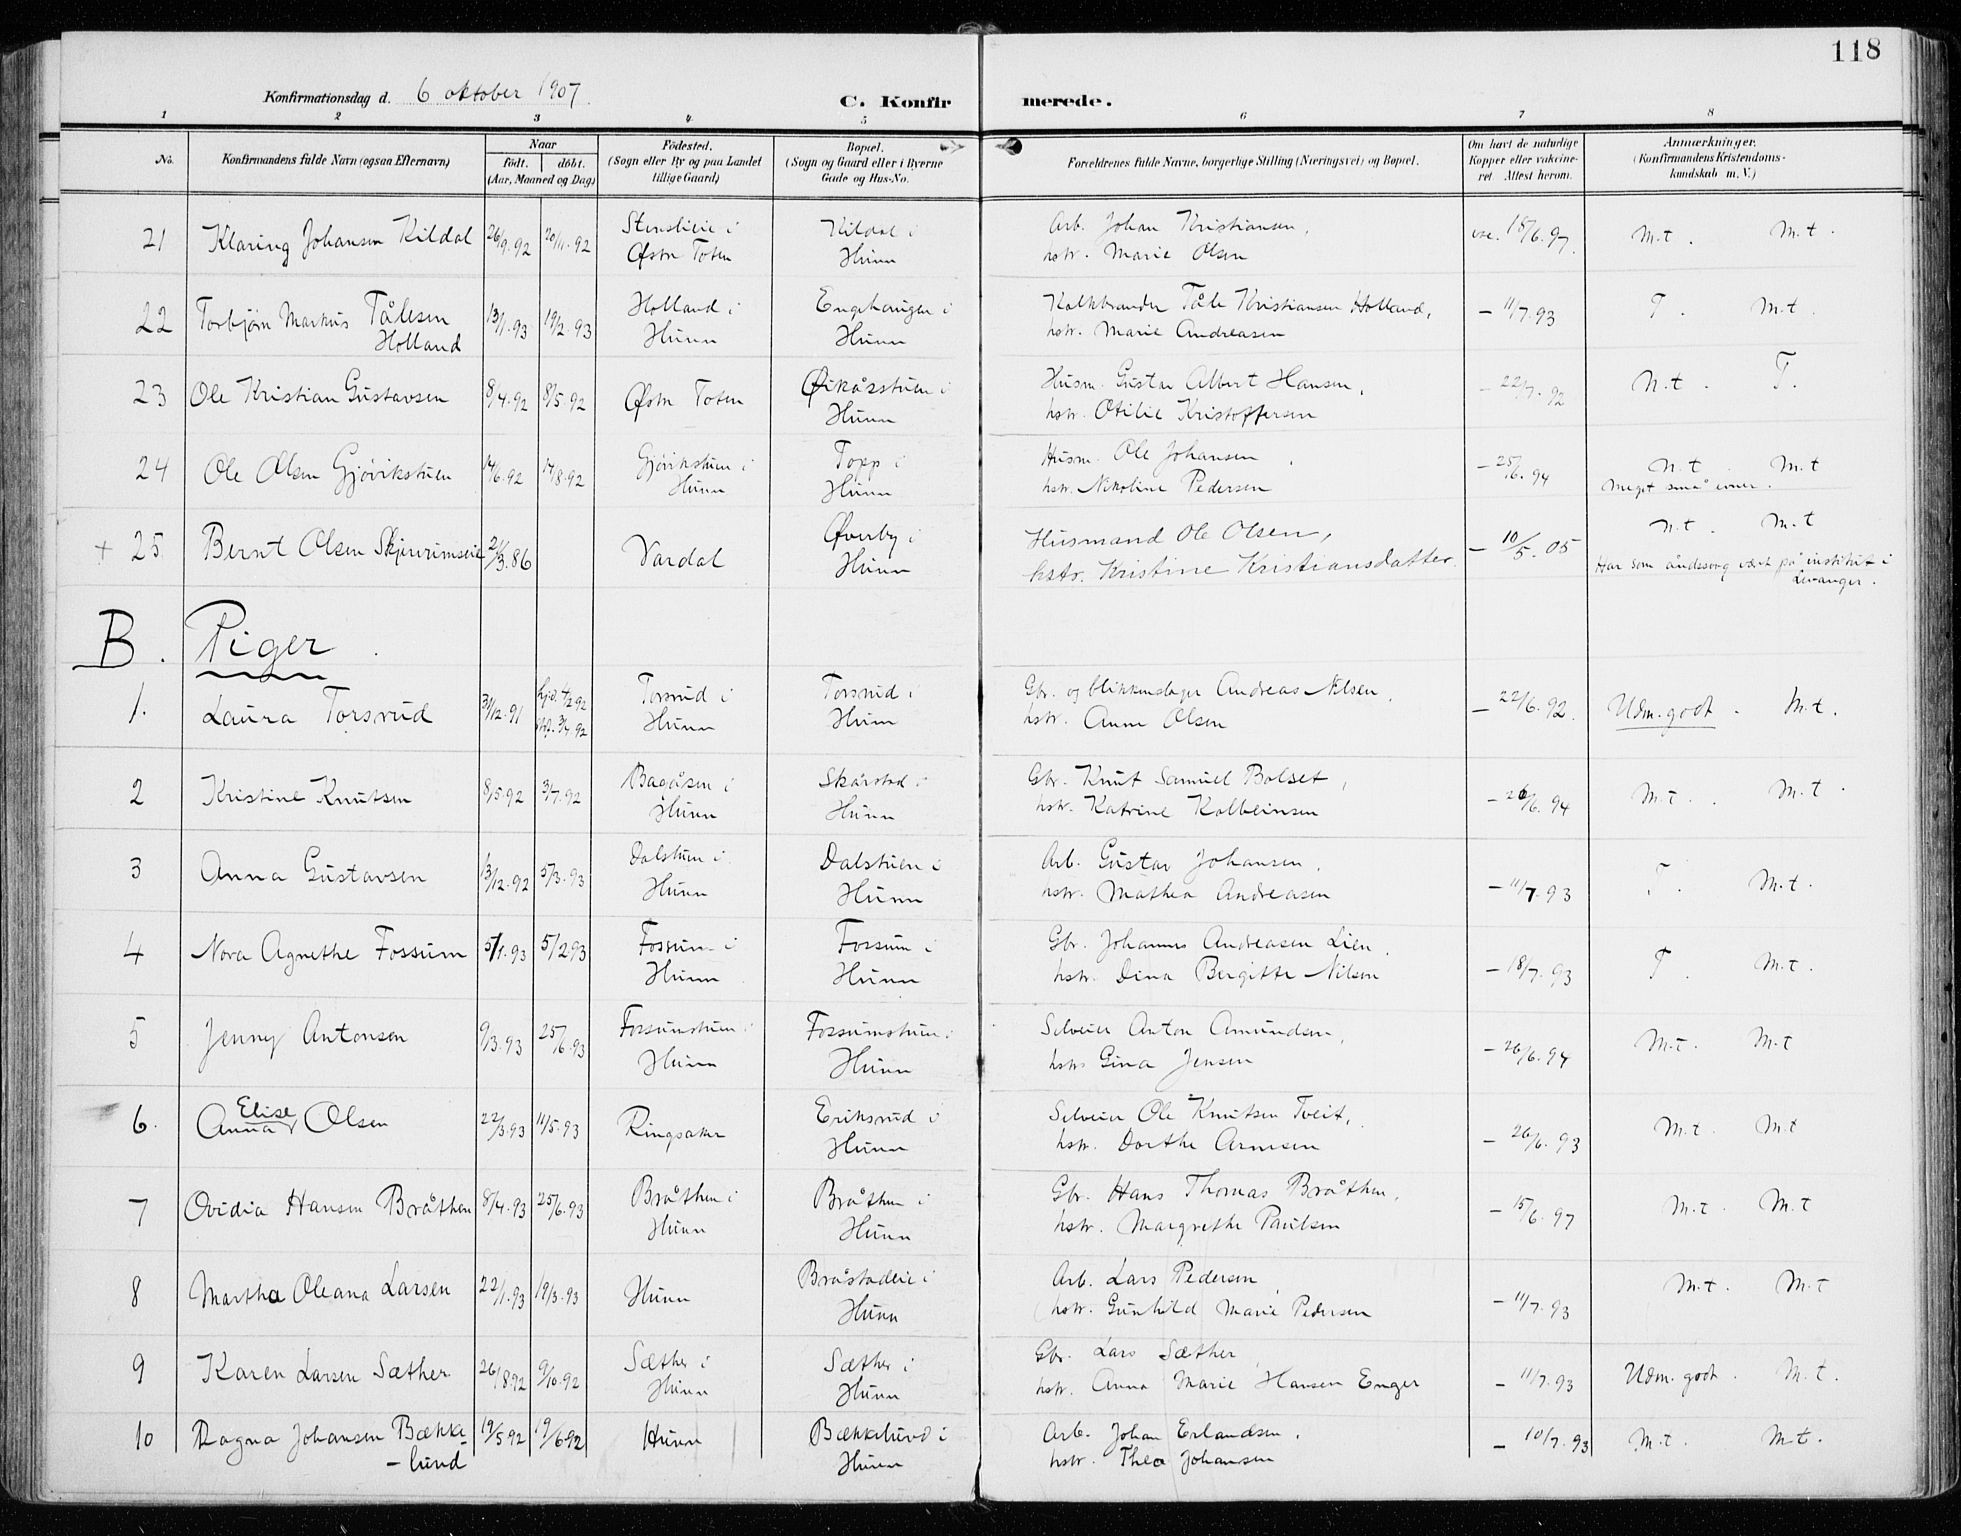 118
Konfirmationsdag d. 6 oktober 1907.
C. Konfirmerede.
1 2 3 4 5 6 7 8
No. Konfirmandens fulde Navn (ogsaa Efternavn) Naar født. døbt. (Aar, Maaned og Dag) Fødested. (Sogn eller By og paa Landet tillige Gaard) Bopæl. (Sogn og Gaard eller i Byerne Gade og Hus-No. Forældrenes fulde Navne, borgerlige Stilling (Næringsvei) og Bopæl. Om havt de naturlige Kopper eller vakcineret. Attest herom. Anmærkninger. (Konfirmandens Kristendomskundskab m. V.)
21 Klaring Johansen Kildal 26/9.92 20/11.92 i Østre Toten Kildal i Hunn Arb. Johan Kristiansen, hstr. Marie Olsen vac. 15/6.97. M.t. M.t.
22 Torbjørn Markus Tålesen Holland 13/1.93 19/2.93 Holland i Hunn Enghaugen i Hunn Kalkbrænder Tåle Kristiansen Holland, hstr. Marie Andreasen – 11/7.93 T. M.t.
23 Ole Kristian Gustavsen 8/4.92 8/5.92 Østre Toten Øikåsstuen i Hunn Husm. Gustav Albert Hansen, hstr. Otilie Kristoffersen – 22/7.92 N.t. T.
24 Ole Olsen Gjøvikstuen 14/6.92 14/8.92 Gjøvikstuen i Hunn Topp i Hunn Husm. Ole Johansen, hstr. Nikoline Pedersen – 25/6.94 N.t. M.t
Meget små evner.
+ 25 Bernt Olsen 21/3.86 Vardal Øverby i Hunn Husmand Ole Olsen, hstr. Kristine Kristiansdatter. – 10/5.05 N.t. M.t
Har som åndssvag været på institut i Levanger.
B. Piger.
1. Laura Torsrud 31/12.91 hjd. 4/2 92 stf. 3/4.92 Torsrud i Hunn Torsrud i Hunn Gbr. og blikkenslager Andreas Nilsen, hstr. Anne Olsen – 22/6.92. Udm. godt. M.t.
2 Kristine Knutsen 8/5.92 3/7.92 Bagåsen i Hunn Skårstad i Hunn Gbr. Knut Samuel Bolset, hstr. Katrine Kolbeinsen – 26/6.94 M.t. M.t.
3 Anna Gustavsen 13/12.92 5/3.93 Dalstuen i Hunn Dalstuen i Hunn Arb. Gustav Johansen, hstr. Mathea Andreasen – 11/7.93 T. M.t.
4 Nora Agnethe Fossum 5/1.93 5/2 93 Fossum i Hunn Fossum i Hunn Gbr. Johannes Andreasen Lien, hstr. Dina Bergitte Nilsen – 18/7.93 T. M.t.
5 Jenny Antonsen 9/3.93 25/6.93 Fossumstuen i Hunn Fossumstuen i Hunn Selveier Anton Amundsen, hstr Gina Jensen – 26/6.94 M.t. M.t
6. Anna Elise Olsen 22/3.93 11/5.93 Ringsaker Eriksrud i Hunn Selveier Ole Knutsen Tveit, hstr. Dorthe Arnesen – 26/6.93 M.t. M.t
7 Ovidia Hansen Bråthen 8/4.93 25/6.93 Bråthen i Hunn Bråthen i Hunn Gbr. Hans Thomas Bråthen, hstr. Margrethe Paulsen – 15/6.97 M.t. M.t
8 Martha Oleana Larsen 22/1.93 19/3.93 Hunn Bråstadeie i Hunn Arb. Lars Pedersen, hstr. Gunhild Marie Pedersen – 11/7.93 M.t. M.t
9 Karen Larsen Sæther 26/8.92 9/10.92 Sæther i Hunn Sæther i Hunn Gbr. Lars Sæther, hstr. Anna Marie Hansen Enger – 11/7.93 Udm. godt. M.t.
10 Ragna Johansen Bækkelund 19/5 92 19/6 92 Hunn Bækkelund i Hunn Arb. Johan Erlandsen, hstr. Thea Johansen – 10/7.93 M.t. M.t.